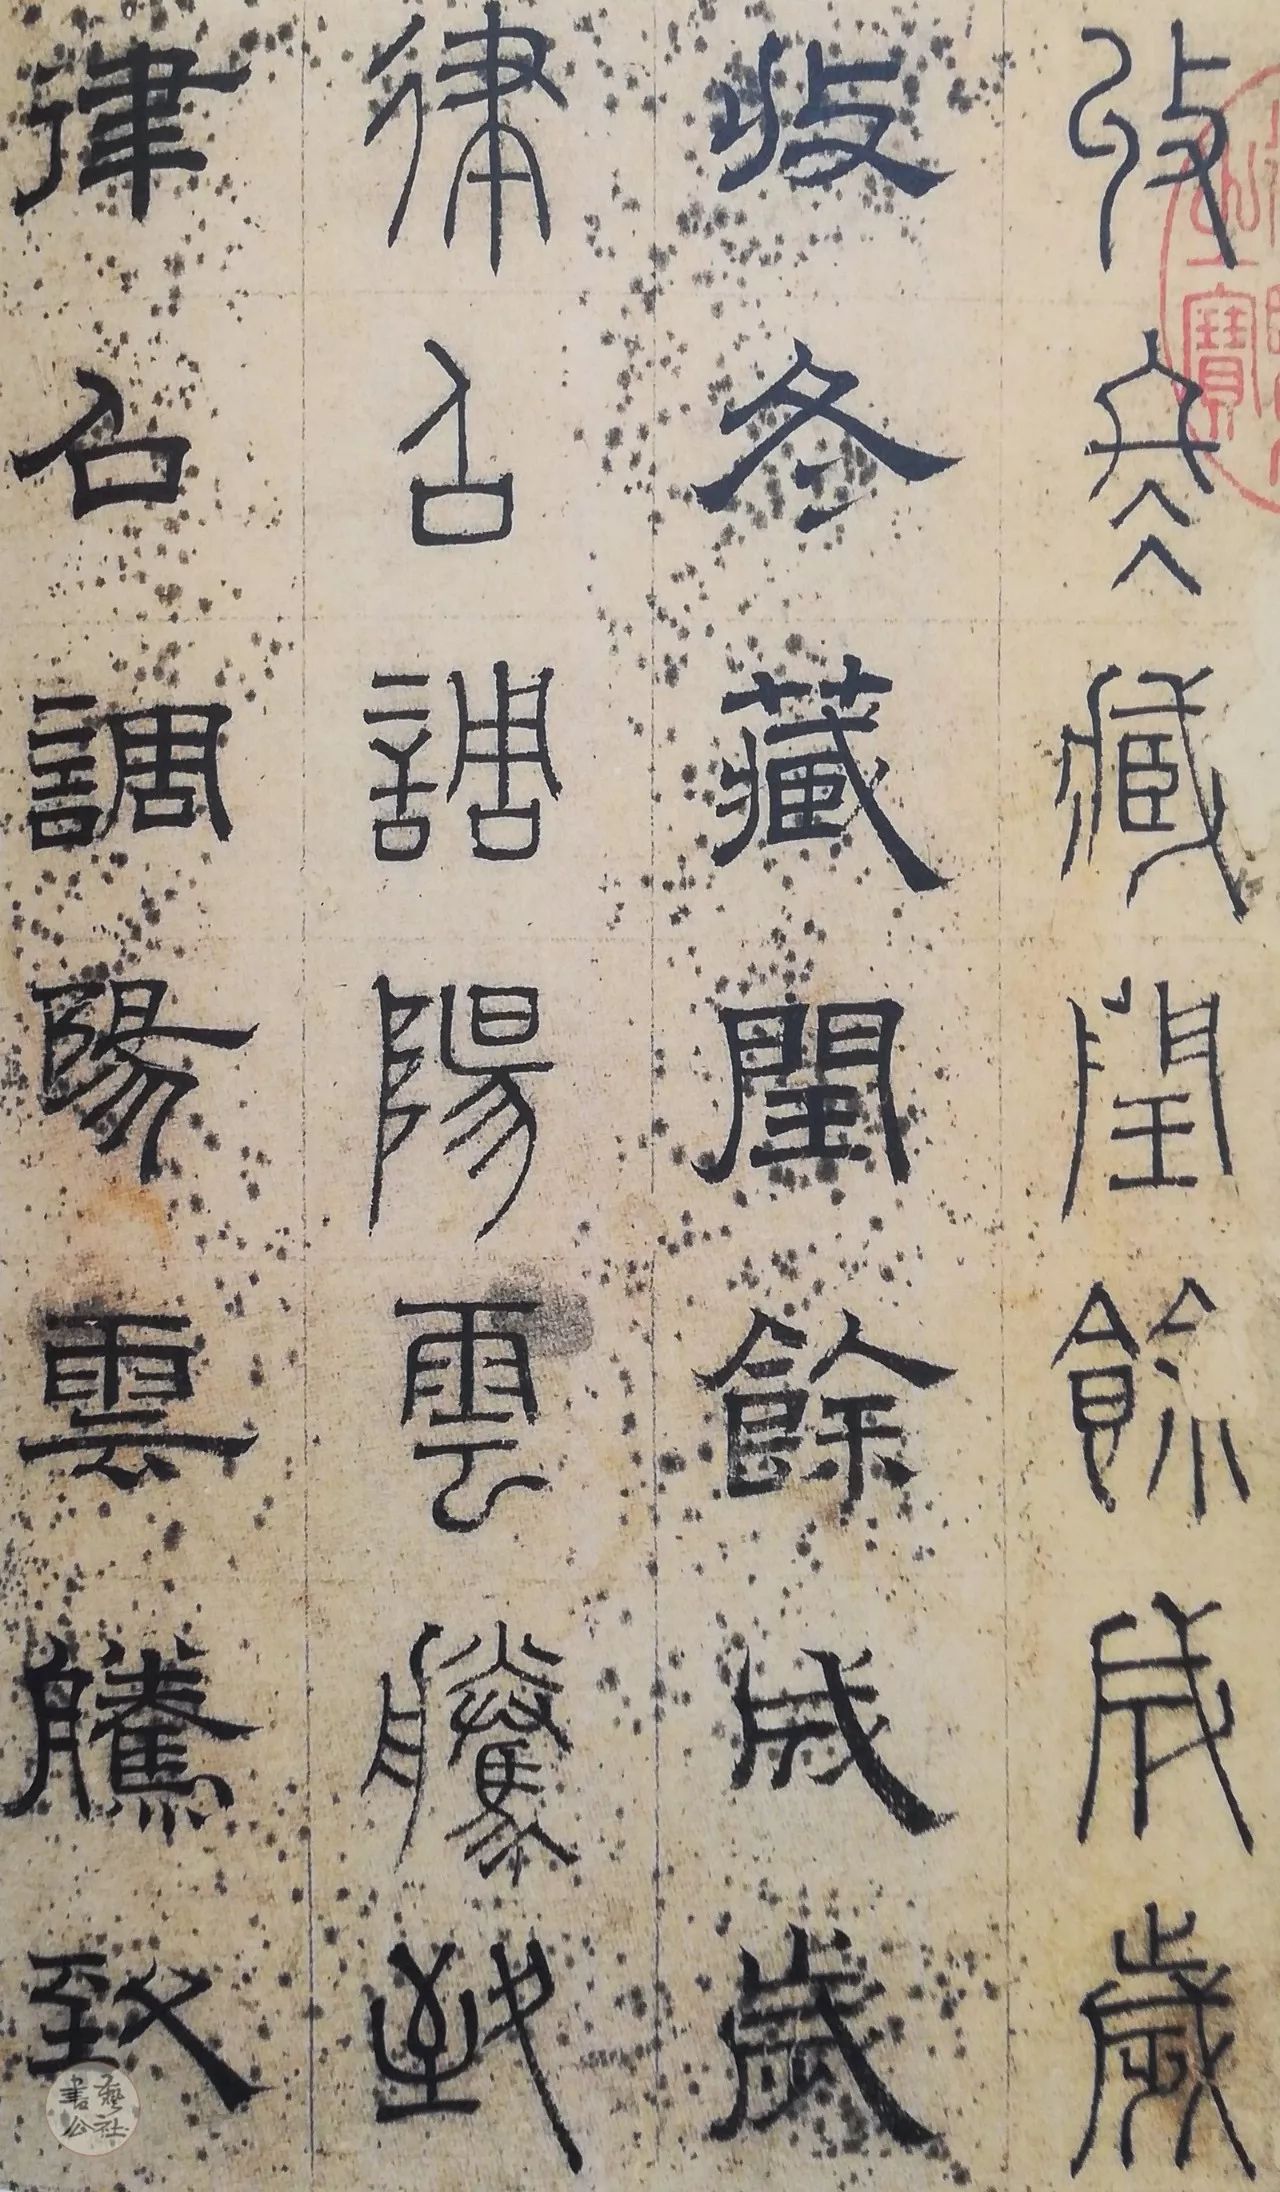 收冬藏閏餘成歲
收冬藏閏餘成歲
律召調陽雲騰致
律召調陽雲騰致
寶
書藝公社